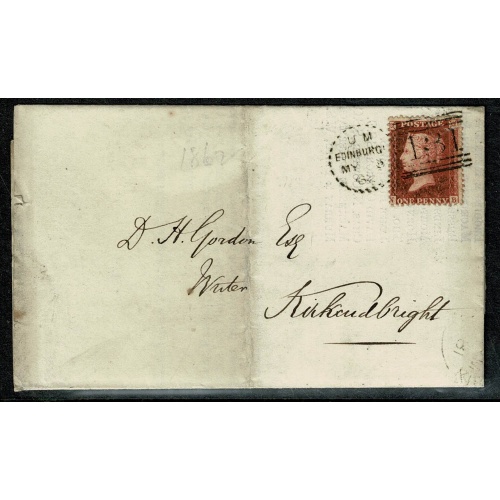 POSTAGE
131
ONE PENNY
U M
EDINBURGH
MY
62
1862
D. H. Gordon Esq
Writer
Kirkcudbright